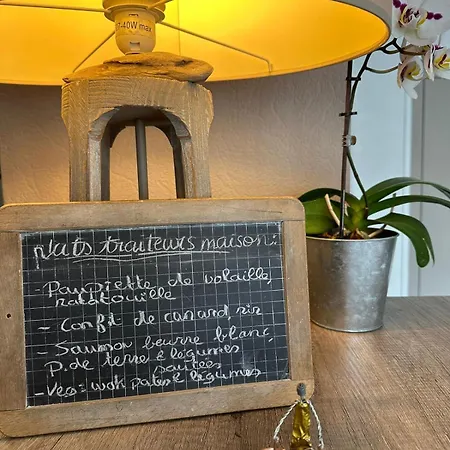 7-40W max
Plats traiteurs maison:
- Paupiette de volaille,
ratatouille
- Confit de canard, riz
- Saumon beurre blanc,
P. de terre & légumes
sautées
- Veg: wok pates & légumes